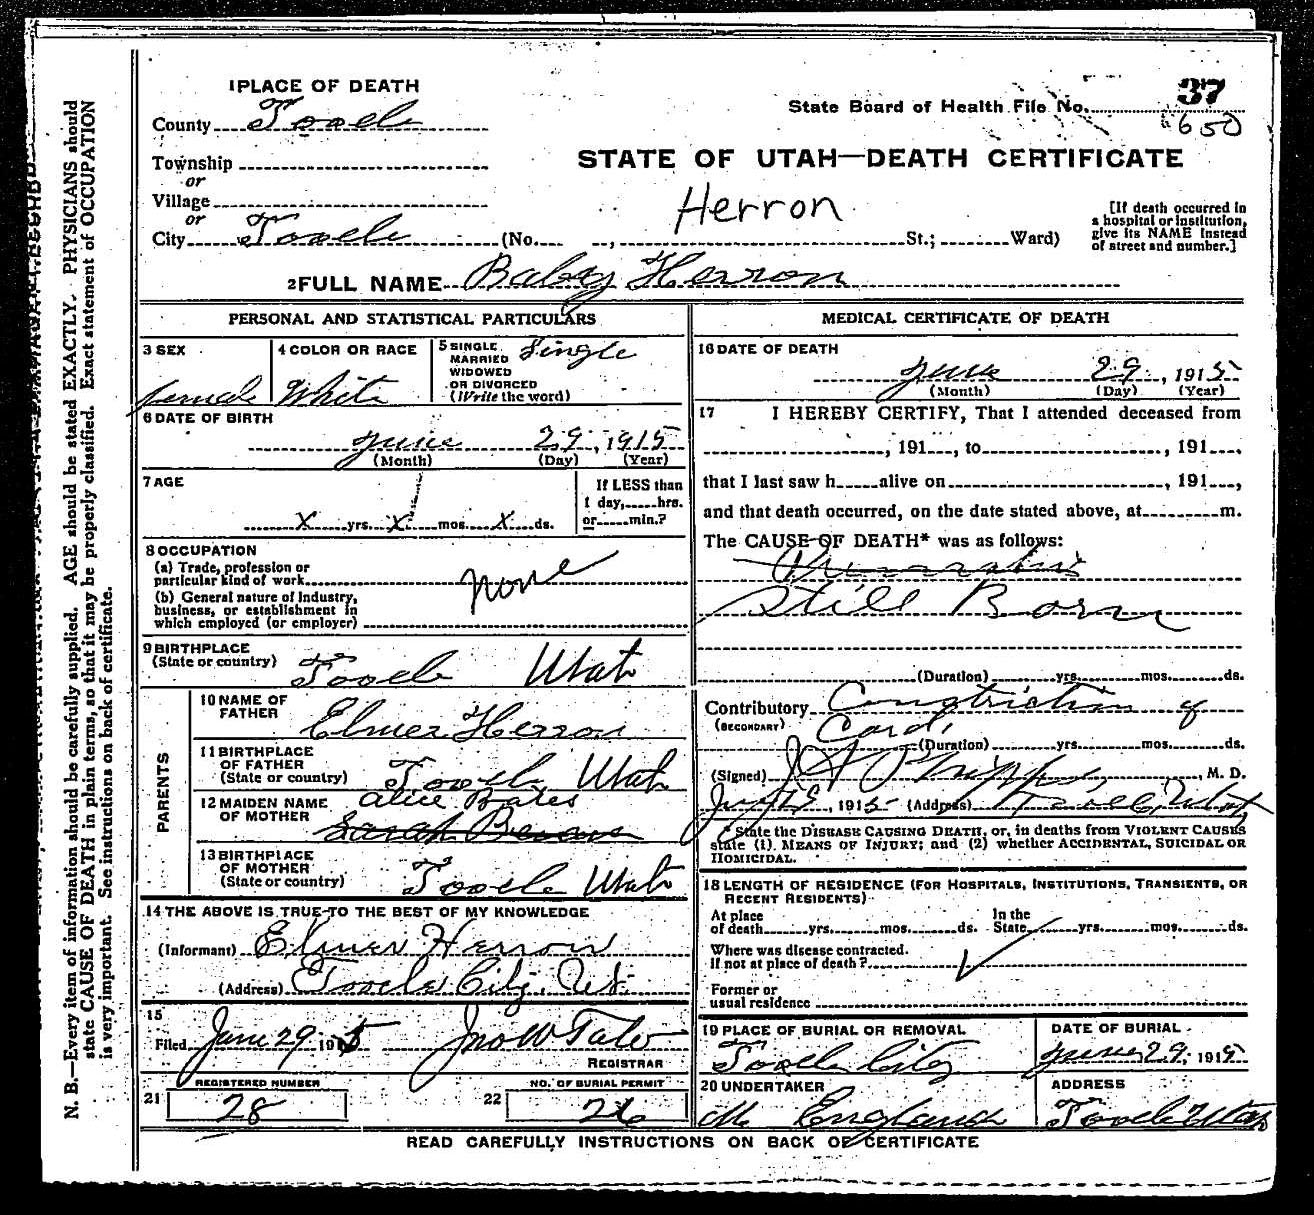 1 PLACE OF DEATH
County Tooele
Township
or
Village
or
City Tooele (No. , St.; Ward)
State Board of Health File No. 37
650
STATE OF UTAH—DEATH CERTIFICATE
Herron
[If death occurred in
a hospital or institution,
give its NAME instead
of street and number.]
2 FULL NAME Baby Herron
PERSONAL AND STATISTICAL PARTICULARS
3 SEX
female
4 COLOR OR RACE
White
5 SINGLE
MARRIED
WIDOWED
OR DIVORCED
(Write the word)
Single
6 DATE OF BIRTH
June 29, 1915
(Month) (Day) (Year)
7 AGE
X yrs. X mos. X ds.
If LESS than
1 day, hrs.
or min.?
8 OCCUPATION
(a) Trade, profession or
particular kind of work
(b) General nature of Industry,
business, or establishment in
which employed (or employer)
none
9 BIRTHPLACE
(State or country) Tooele Utah
PARENTS
10 NAME OF
FATHER Elmer Herron
11 BIRTHPLACE
OF FATHER
(State or country) Tooele Utah
12 MAIDEN NAME
OF MOTHER
Alice Bates
13 BIRTHPLACE
OF MOTHER
(State or country) Tooele Utah
14 THE ABOVE IS TRUE TO THE BEST OF MY KNOWLEDGE
(Informant) Elmer Herron
(Address) Tooele City, Ut.
15
Filed June 29 1915 Jno W Tate
REGISTRAR
REGISTERED NUMBER
21 28
NO. OF BURIAL PERMIT
22 26
MEDICAL CERTIFICATE OF DEATH
16 DATE OF DEATH
June 29, 1915
(Month) (Day) (Year)
17 I HEREBY CERTIFY, That I attended deceased from
, 191 , to , 191 ,
that I last saw h alive on , 191 ,
and that death occurred, on the date stated above, at m.
The CAUSE OF DEATH* was as follows:
Still Born
(Duration) yrs. mos. ds.
Contributory Constriction of
(SECONDARY) Cord,
(Duration) yrs. mos. ds.
(Signed) , M. D.
, 1915 (Address) Tooele, Utah
* State the DISEASE CAUSING DEATH, or, in deaths from VIOLENT CAUSES
state (1) MEANS OF INJURY; and (2) whether ACCIDENTAL, SUICIDAL OR
HOMICIDAL.
18 LENGTH OF RESIDENCE (FOR HOSPITALS, INSTITUTIONS, TRANSIENTS, OR
RECENT RESIDENTS)
At place
of death yrs. mos. ds.
In the
State yrs. mos. ds.
Where was disease contracted.
If not at place of death?
Former or
usual residence
19 PLACE OF BURIAL OR REMOVAL
Tooele City
DATE OF BURIAL
June 29, 1915
20 UNDERTAKER
M England
ADDRESS
Tooele Utah
READ CAREFULLY INSTRUCTIONS ON BACK OF CERTIFICATE
N. B.—Every item of information should be carefully supplied. AGE should be stated EXACTLY. PHYSICIANS should
state CAUSE OF DEATH in plain terms, so that it may be properly classified. Exact statement of OCCUPATION
is very important. See instructions on back of certificate.